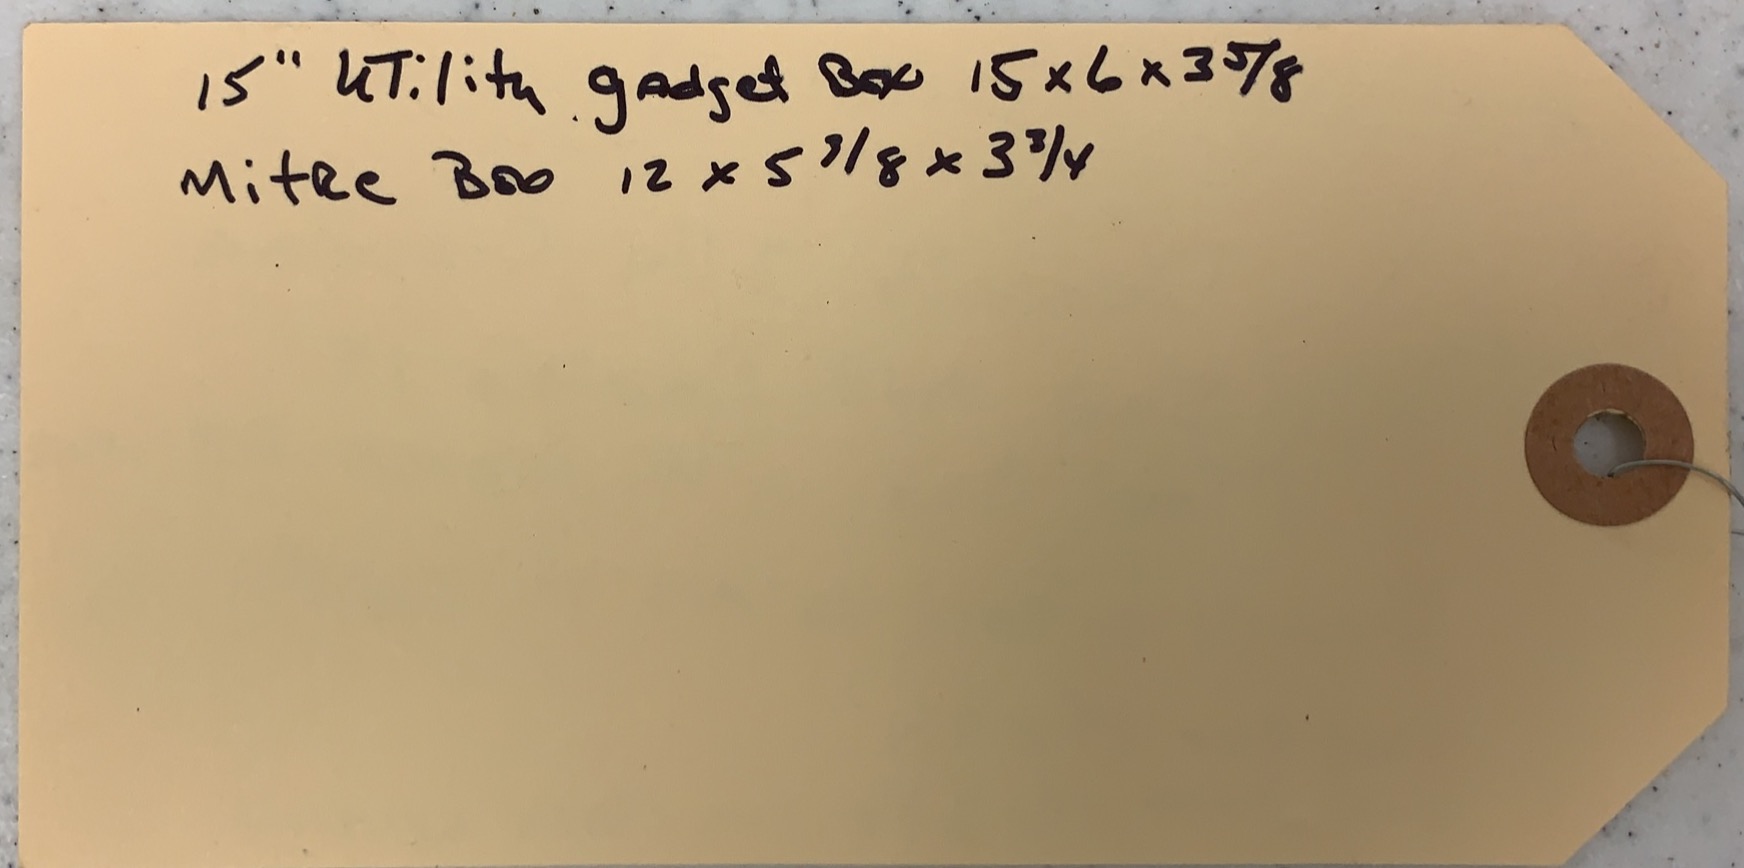 15" UTility gadget Box 15 x 6 x 3 5/8
MitRe Box 12 x 5 3/8 x 3 3/4